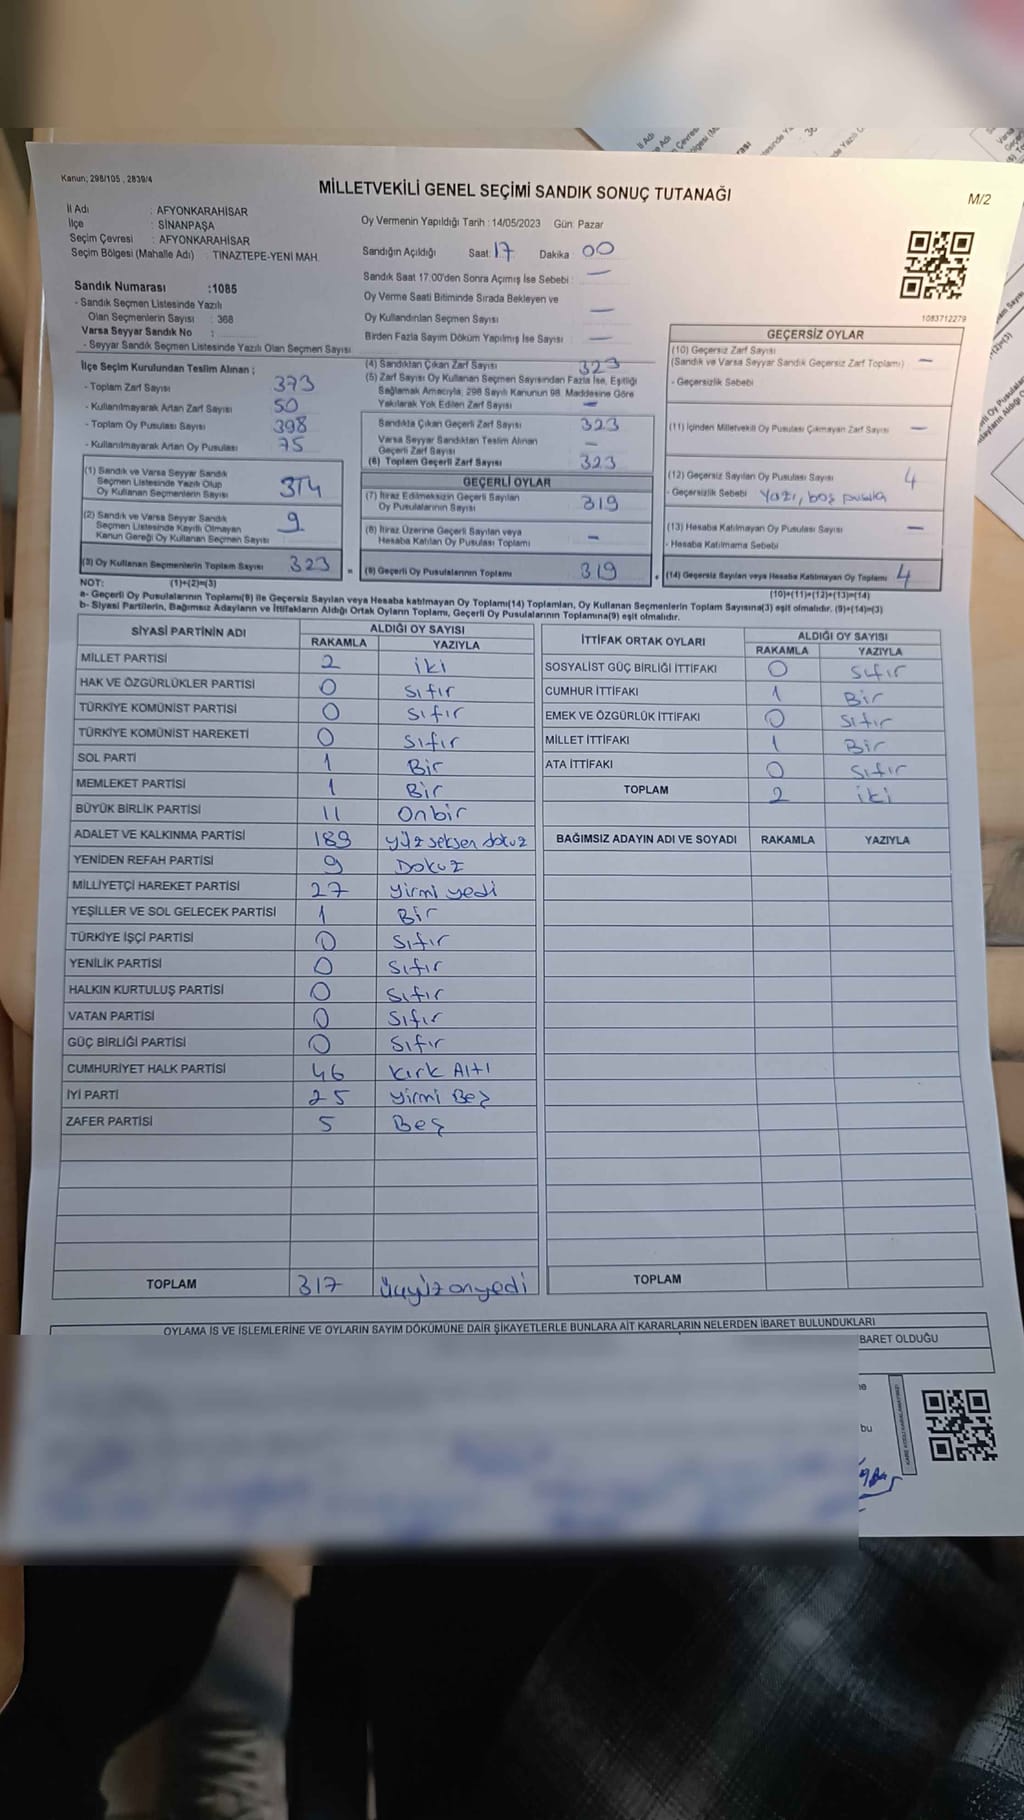 Kanun; 298/105 , 2839/4
MİLLETVEKİLİ GENEL SEÇİMİ SANDIK SONUÇ TUTANAĞI
M/2
İl Adı : AFYONKARAHİSAR
İlçe : SİNANPAŞA
Seçim Çevresi : AFYONKARAHİSAR
Seçim Bölgesi (Mahalle Adı) : TINAZTEPE-YENİ MAH.
Sandık Numarası :1085
- Sandık Seçmen Listesinde Yazılı
Olan Seçmenlerin Sayısı : 368
Varsa Seyyar Sandık No :
- Seyyar Sandık Seçmen Listesinde Yazılı Olan Seçmen Sayısı
Oy Vermenin Yapıldığı Tarih : 14/05/2023 Gün: Pazar
Sandığın Açıldığı Saat: 17 Dakika 00
Sandık Saat 17:00'den Sonra Açımış İse Sebebi : —
Oy Verme Saati Bitiminde Sırada Bekleyen ve
Oy Kullandırılan Seçmen Sayısı —
Birden Fazla Sayım Döküm Yapılmış İse Sayısı : —
1083712279
İlçe Seçim Kurulundan Teslim Alınan ;
- Toplam Zarf Sayısı 373
- Kullanılmayarak Artan Zarf Sayısı 50
- Toplam Oy Pusulası Sayısı 398
- Kullanılmayarak Artan Oy Pusulası 75
(1) Sandık ve Varsa Seyyar Sandık
Seçmen Listesinde Yazılı Olup
Oy Kullanan Seçmenlerin Sayısı 314
(2) Sandık ve Varsa Seyyar Sandık
Seçmen Listesinde Kayıtlı Olmayan
Kanun Gereği Oy Kullanan Seçmen Sayısı 9
(3) Oy Kullanan Seçmenlerin Toplam Sayısı 323
(4) Sandıktan Çıkan Zarf Sayısı 323
(5) Zarf Sayısı Oy Kullanan Seçmen Sayısından Fazla İse, Eşitliği
Sağlamak Amacıyla; 298 Sayılı Kanunun 98. Maddesine Göre
Yakılarak Yok Edilen Zarf Sayısı —
Sandıkta Çıkan Geçerli Zarf Sayısı 323
Varsa Seyyar Sandıktan Teslim Alınan
Geçerli Zarf Sayısı —
(6) Toplam Geçerli Zarf Sayısı 323
GEÇERLİ OYLAR
(7) İtiraz Edilmeksizin Geçerli Sayılan
Oy Pusulalarının Sayısı 319
(8) İtiraz Üzerine Geçerli Sayılan veya
Hesaba Katılan Oy Pusulası Toplamı —
= (9) Geçerli Oy Pusulalarının Toplamı 319
GEÇERSİZ OYLAR
(10) Geçersiz Zarf Sayısı
(Sandık ve Varsa Seyyar Sandık Geçersiz Zarf Toplamı) —
- Geçersizlik Sebebi
(11) İçinden Milletvekili Oy Pusulası Çıkmayan Zarf Sayısı —
(12) Geçersiz Sayılan Oy Pusulası Sayısı 4
- Geçersizlik Sebebi Yazı, boş pusula
(13) Hesaba Katılmayan Oy Pusulası Sayısı —
- Hesaba Katılmama Sebebi
+ (14) Geçersiz Sayılan veya Hesaba Katılmayan Oy Toplamı 4
NOT: (1)+(2)=(3) (10)+(11)+(12)+(13)=(14)
a- Geçerli Oy Pusulalarının Toplamı(9) ile Geçersiz Sayılan veya Hesaba katılmayan Oy Toplamı(14) Toplamları, Oy Kullanan Seçmenlerin Toplam Sayısına(3) eşit olmalıdır. (9)+(14)=(3)
b- Siyasi Partilerin, Bağımsız Adayların ve İttifakların Aldığı Ortak Oyların Toplamı, Geçerli Oy Pusulalarının Toplamına(9) eşit olmalıdır.
SİYASİ PARTİNİN ADI ALDIĞI OY SAYISI
RAKAMLA YAZIYLA
MİLLET PARTİSİ 2 iki
HAK VE ÖZGÜRLÜKLER PARTİSİ 0 sıfır
TÜRKİYE KOMÜNİST PARTİSİ 0 sıfır
TÜRKİYE KOMÜNİST HAREKETİ 0 sıfır
SOL PARTİ 1 Bir
MEMLEKET PARTİSİ 1 Bir
BÜYÜK BİRLİK PARTİSİ 11 onbir
ADALET VE KALKINMA PARTİSİ 189 yüz seksen dokuz
YENİDEN REFAH PARTİSİ 9 Dokuz
MİLLİYETÇİ HAREKET PARTİSİ 27 yirmi yedi
YEŞİLLER VE SOL GELECEK PARTİSİ 1 Bir
TÜRKİYE İŞÇİ PARTİSİ 0 sıfır
YENİLİK PARTİSİ 0 sıfır
HALKIN KURTULUŞ PARTİSİ 0 sıfır
VATAN PARTİSİ 0 sıfır
GÜÇ BİRLİĞİ PARTİSİ 0 sıfır
CUMHURİYET HALK PARTİSİ 46 kırk Altı
İYİ PARTİ 25 yirmi Beş
ZAFER PARTİSİ 5 Beş
TOPLAM 317 üçyüzonyedi
İTTİFAK ORTAK OYLARI ALDIĞI OY SAYISI
RAKAMLA YAZIYLA
SOSYALİST GÜÇ BİRLİĞİ İTTİFAKI 0 sıfır
CUMHUR İTTİFAKI 1 Bir
EMEK VE ÖZGÜRLÜK İTTİFAKI 0 sıfır
MİLLET İTTİFAKI 1 Bir
ATA İTTİFAKI 0 sıfır
TOPLAM 2 iki
BAĞIMSIZ ADAYIN ADI VE SOYADI RAKAMLA YAZIYLA
TOPLAM
OYLAMA İŞ VE İŞLEMLERİNE VE OYLARIN SAYIM DÖKÜMÜNE DAİR ŞİKAYETLERLE BUNLARA AİT KARARLARIN NELERDEN İBARET BULUNDUKLARI
BARET OLDUĞU
bu